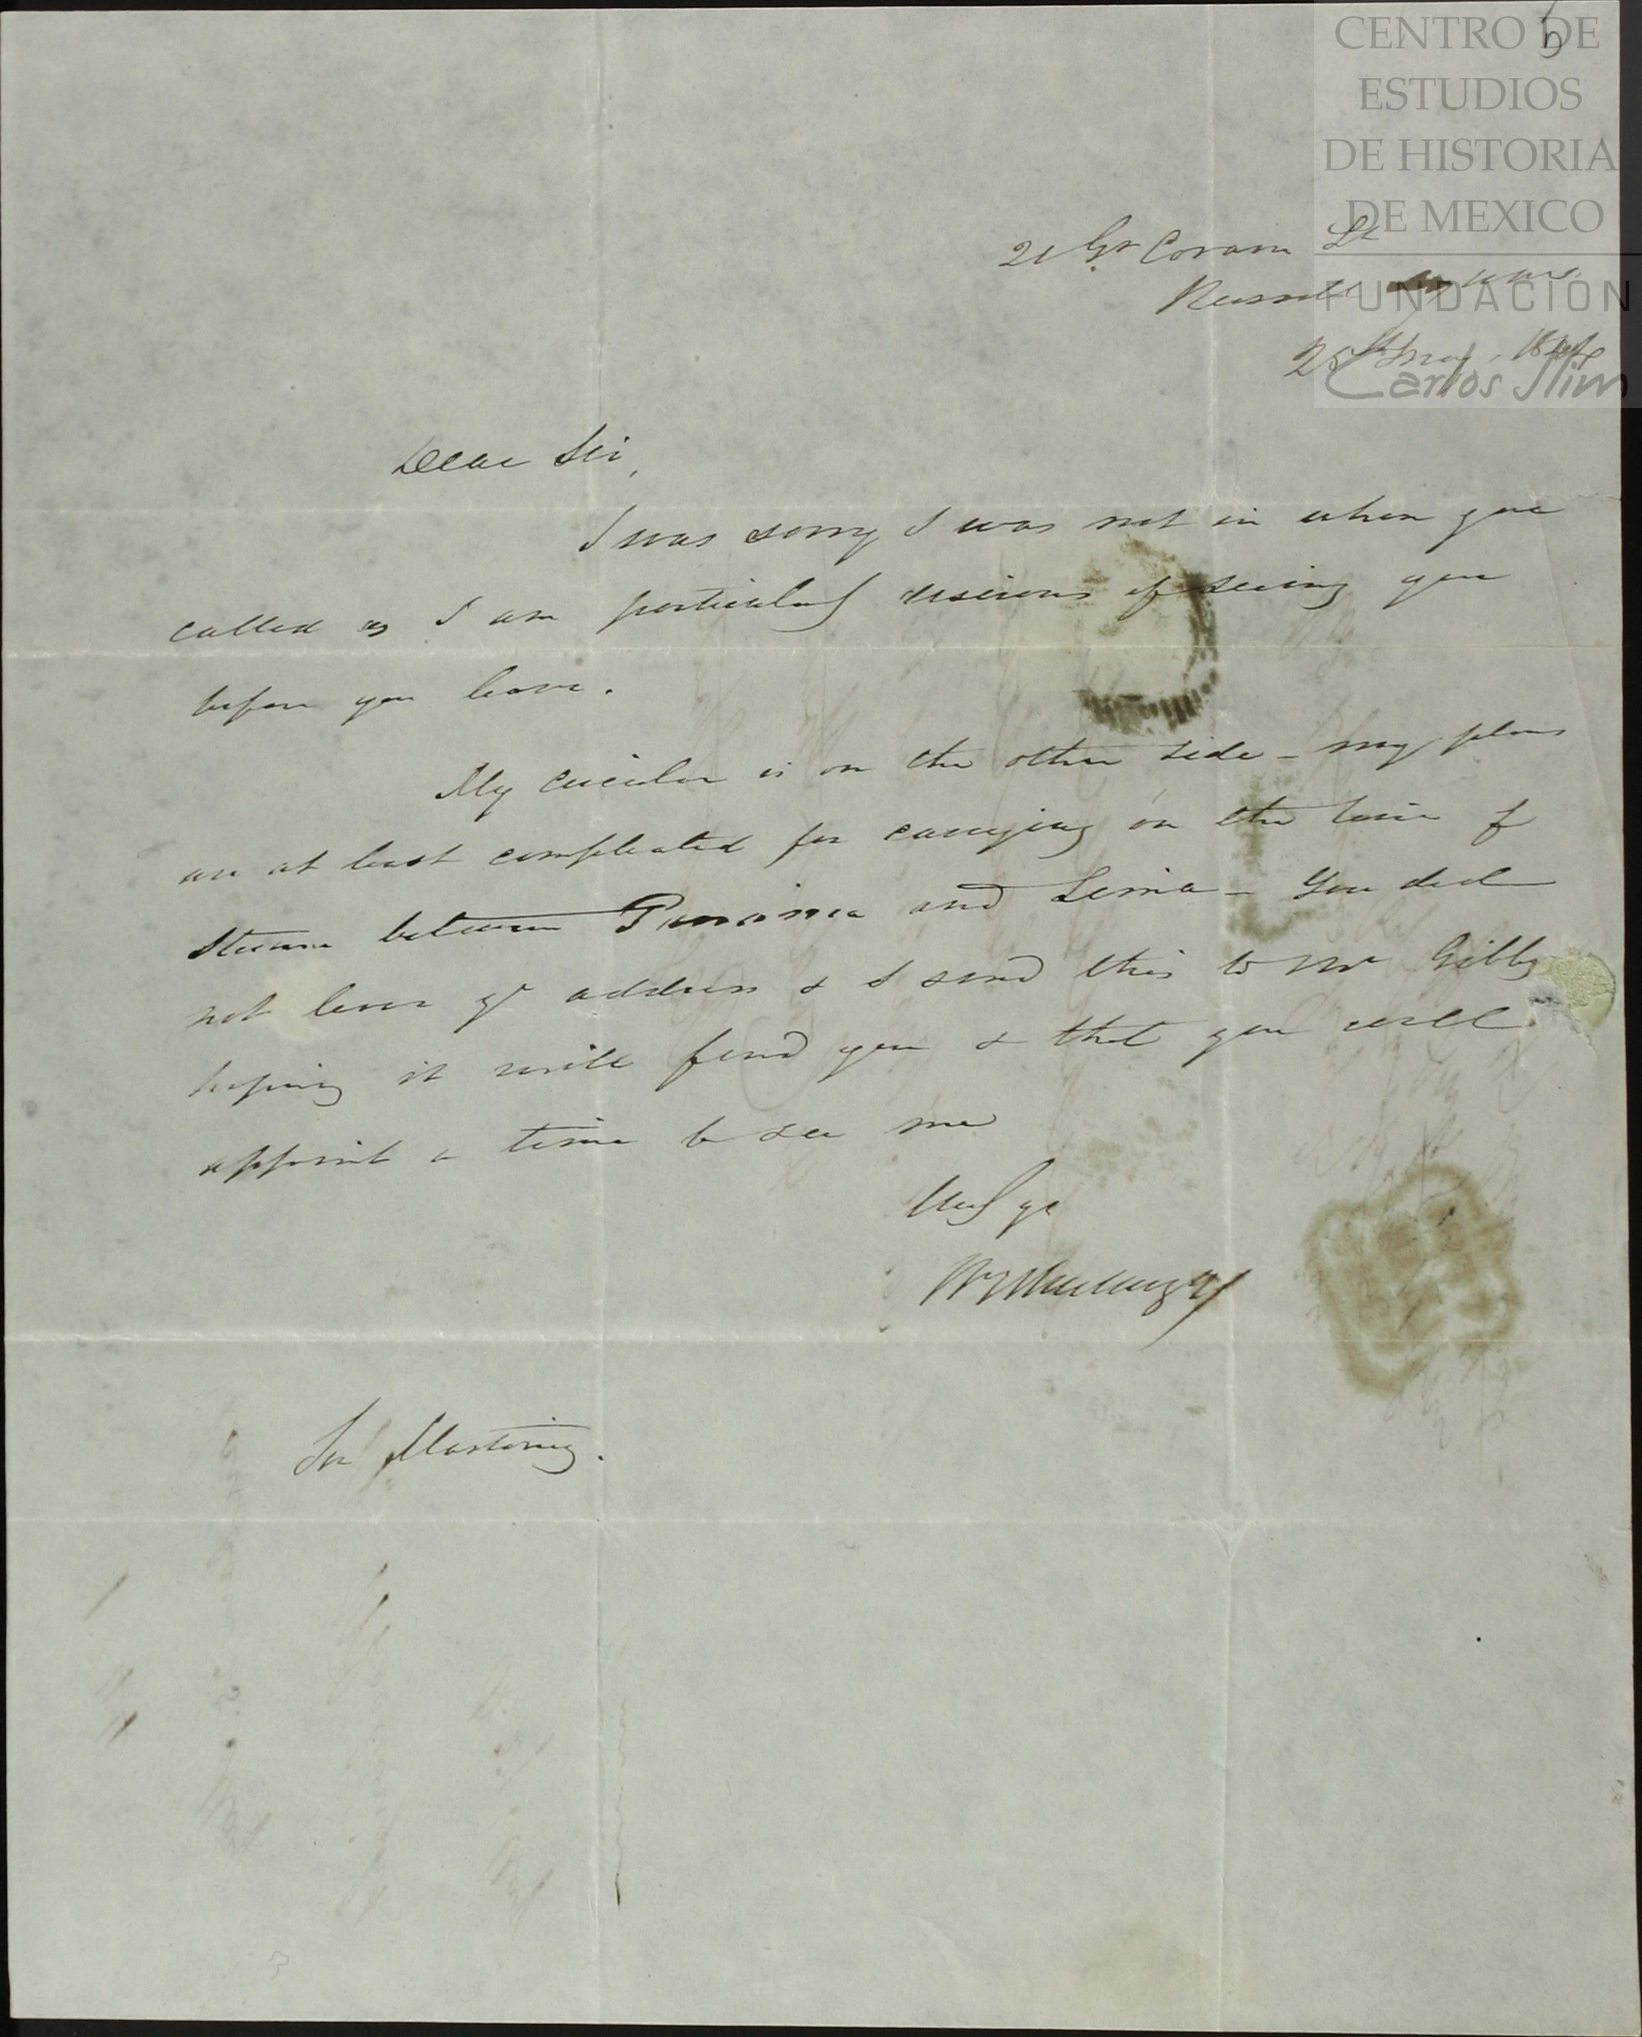 CENTRO DE
ESTUDIOS
DE HISTORIA
DE MEXICO
FUNDACIÓN
Carlos Slim
21 Gt Coram St
Russell Square
25th May
Dear Sir,
I was sorry I was not in when you
called as I am particularly desirous of seeing you
before you leave.
My circular is on the other side - my plans
are at least compleated for carrying on the line of
Steam between Panama and Lima - You did
not leave yr address & I send this to Mr Gibbs
hoping it will find you & that you will
appoint a time to see me